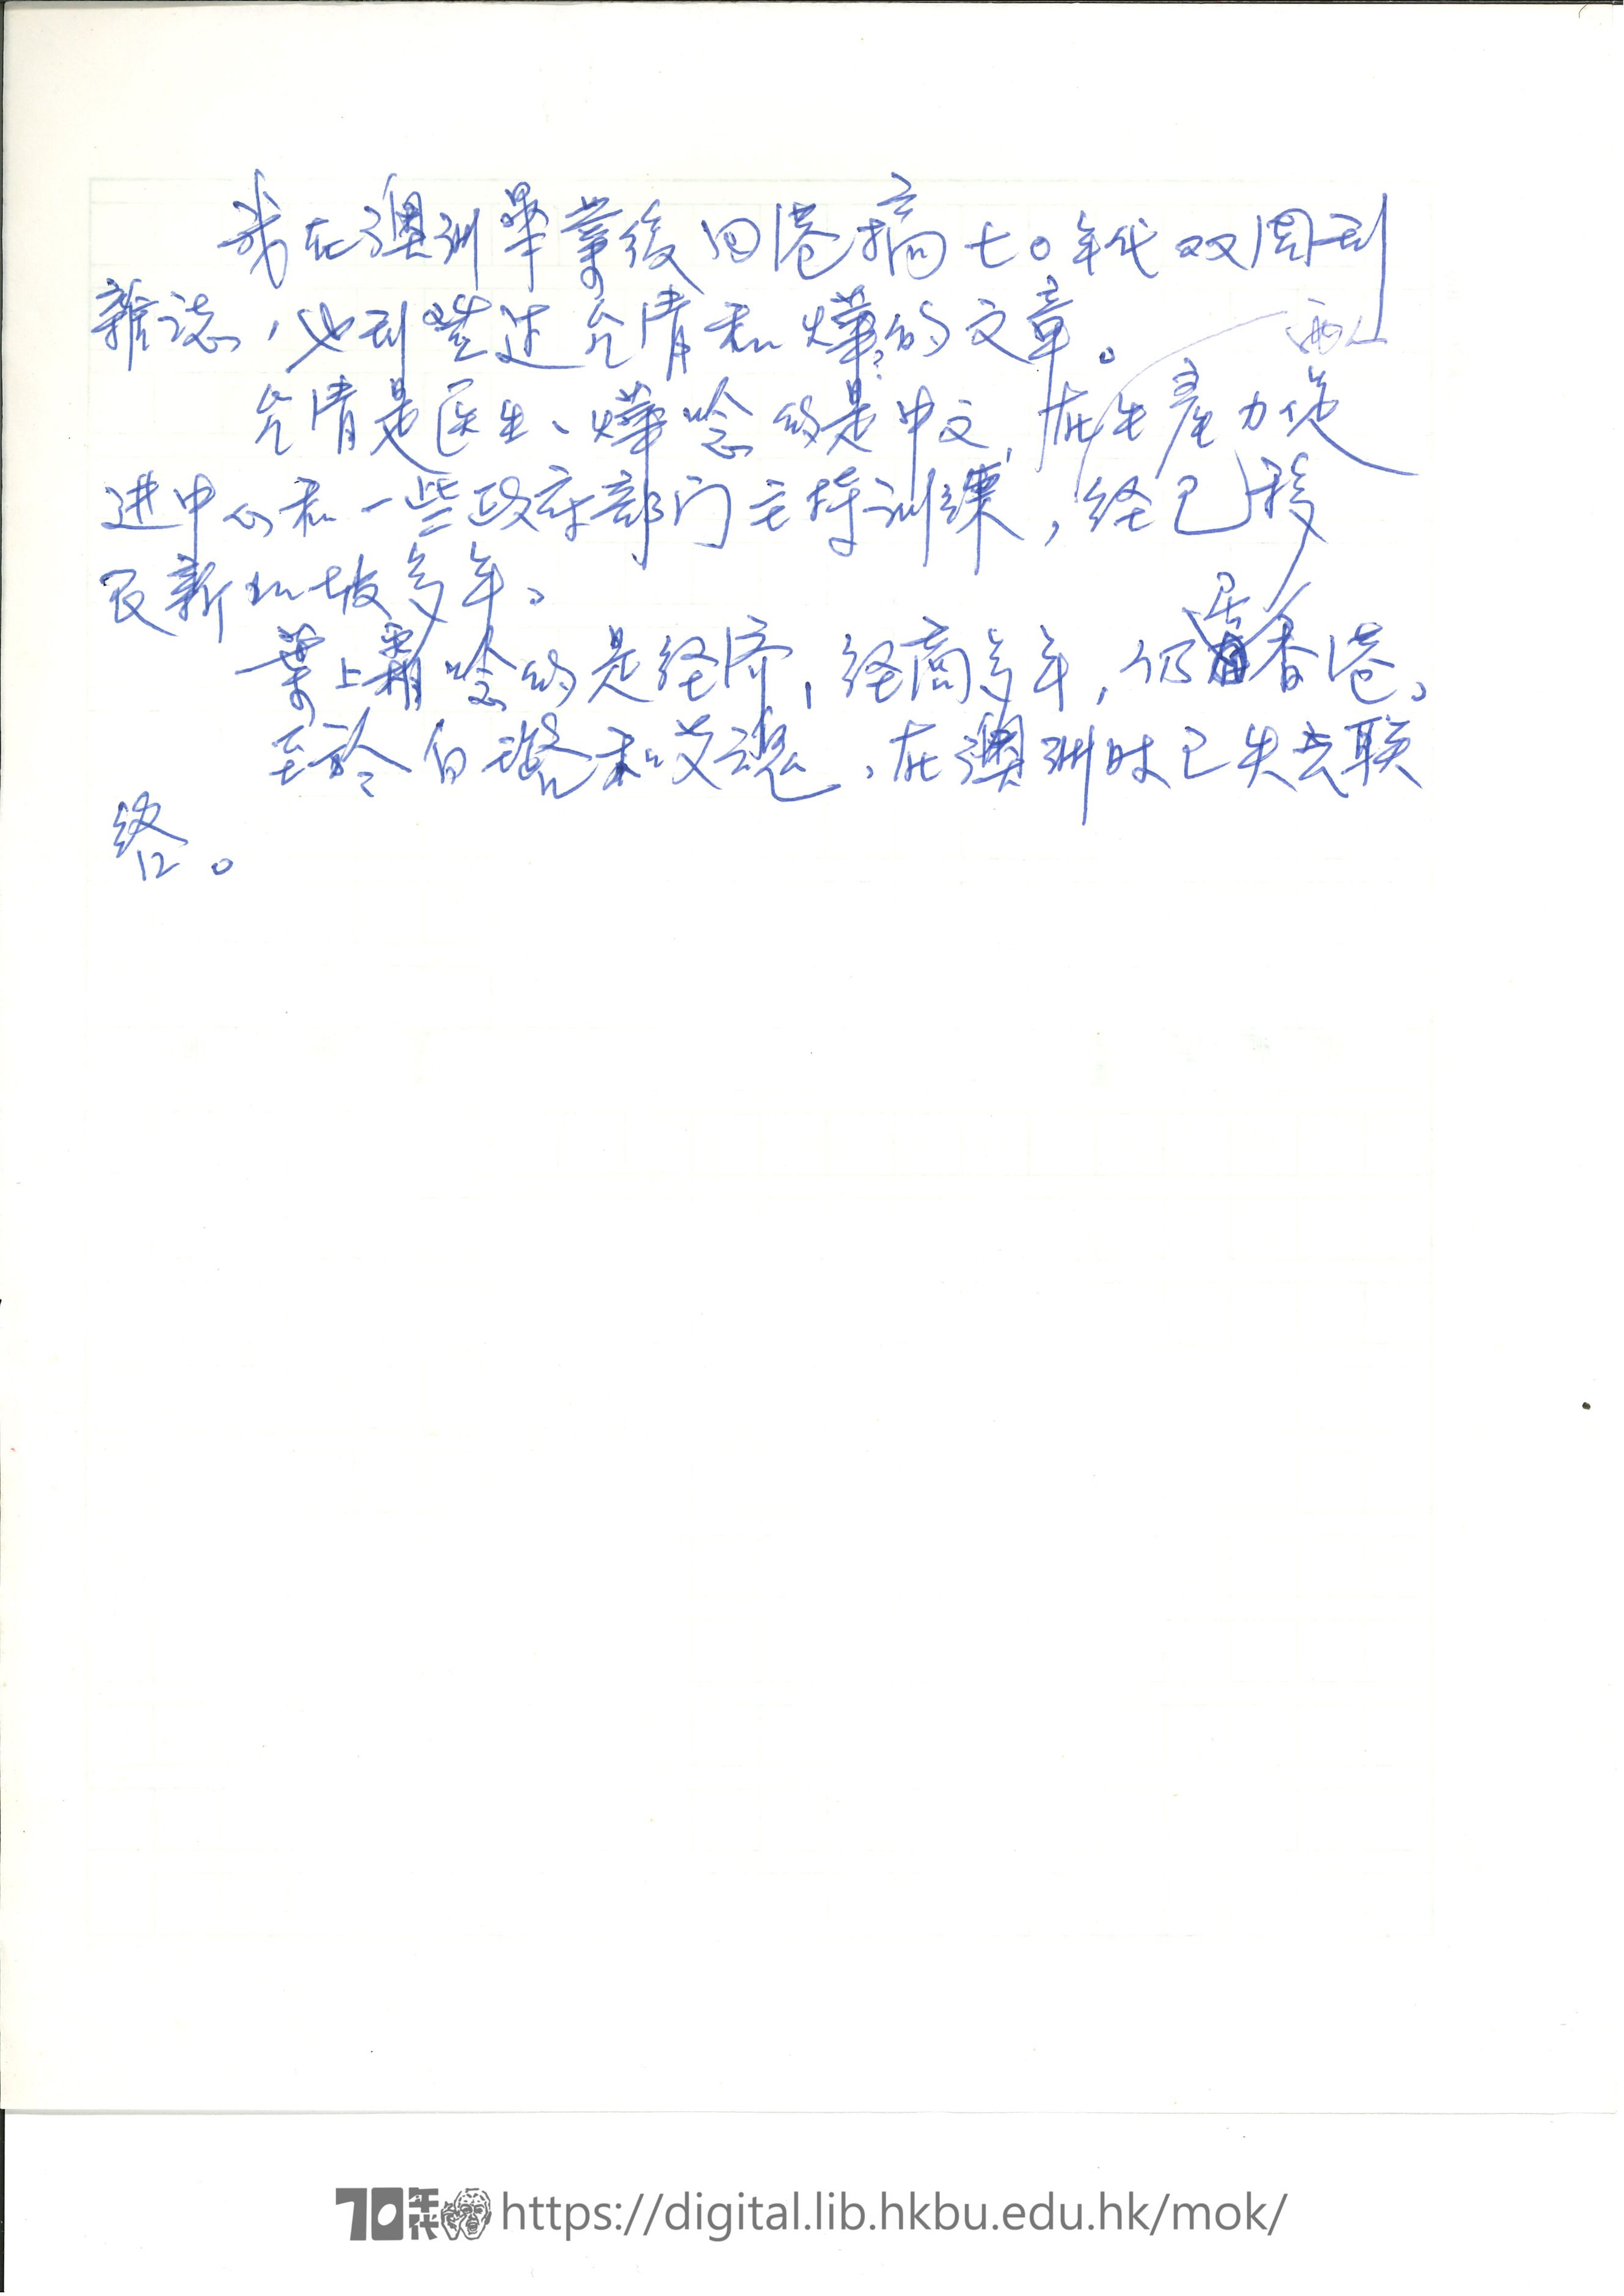 我在澳洲畢業後回港搞七〇年代双周刊
雜誌，也刊登过允情和燁的文章。
两人
允情是医生、燁唸的是中文，在生產力促
进中心和一些政府部门主持训練，经已移
民新加坡多年。
葉上霜唸的是经济，经商多年，仍居香港。
至於白璐和哎魂，在澳洲时已失去联
络。
70年代 https://digital.lib.hkbu.edu.hk/mok/